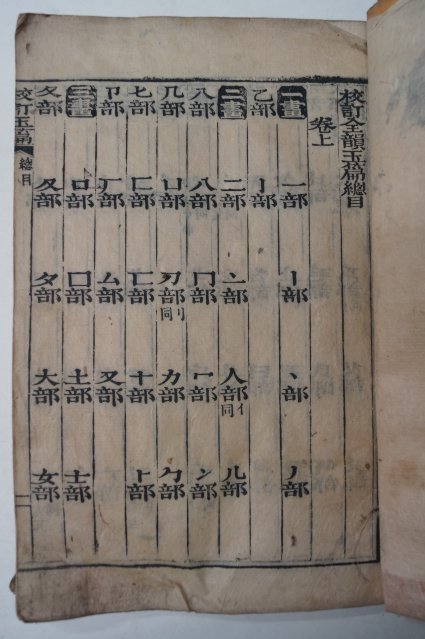 校訂全韻玉篇總目
卷上
一畫 一部 丨部 丶部 丿部
乙部 亅部
二畫 二部 亠部 人部亻同 儿部
八部 入部 冂部 冖部 冫部
几部 凵部 刀部刂同 力部 勹部
匕部 匚部 匸部 十部 卜部
卩部 厂部 厶部 又部
三畫 口部 囗部 土部 士部
夂部 夊部 夕部 大部 女部
校訂玉篇 總目 一